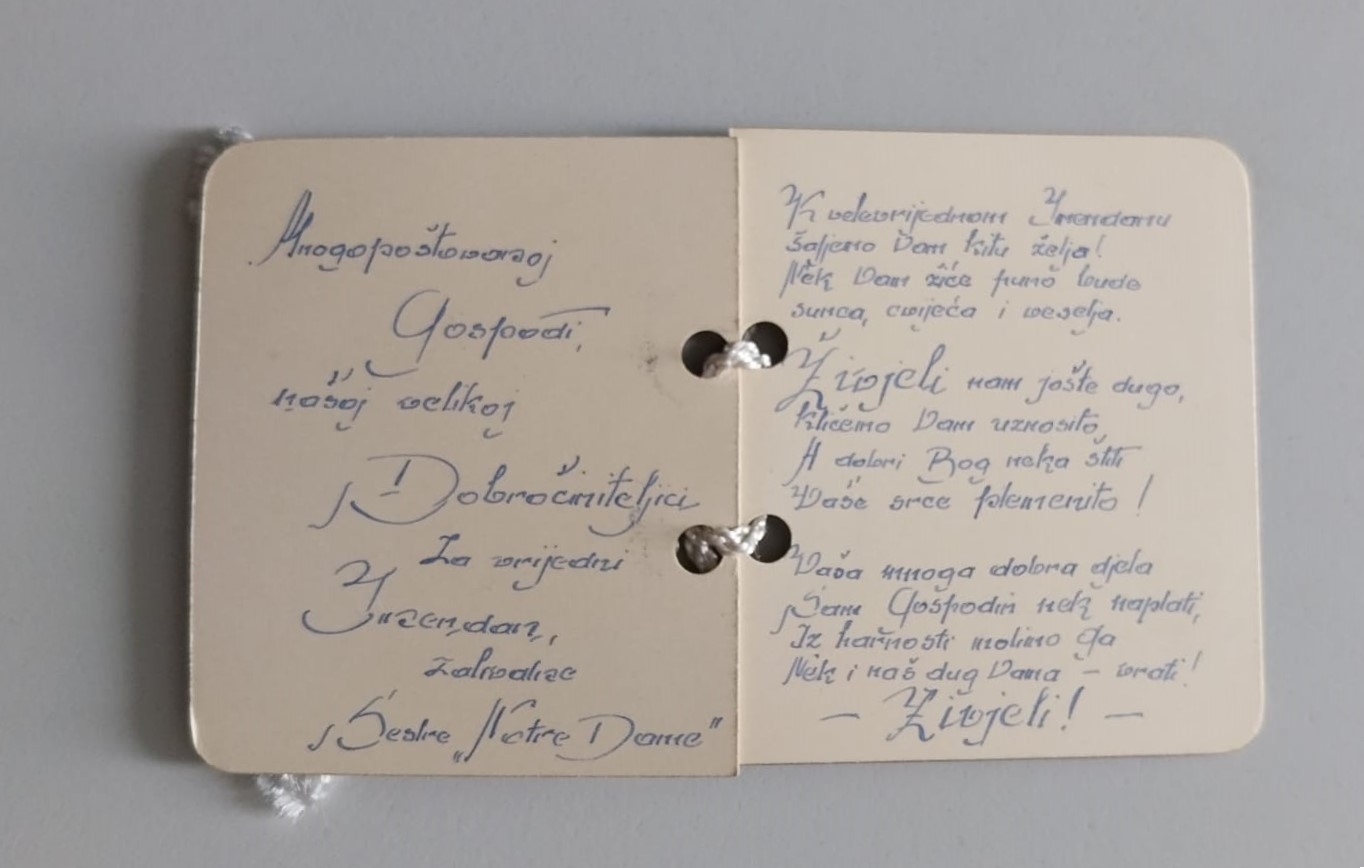 Mnogopoštovanoj
Gospodi,
našoj velikoj
Dobročiniteljici
Za vrijedni
Imendan,
zahvalne
Sestre „Notre Dame"
K velevrijednom Imendanu
šaljemo Vam kitu želja!
Nek Vam žiće puno bude
sunca, cvijeća i veselja.
Živjeli nam jošte dugo,
Kličemo Vam uznosito,
A dobri Bog neka štiti
Vaše srce plemenito!
Vaša mnoga dobra djela
Sam Gospodin nek naplati,
Iz harnosti molimo Ga
Nek i naš dug Vama - vrati!
- Živjeli! -